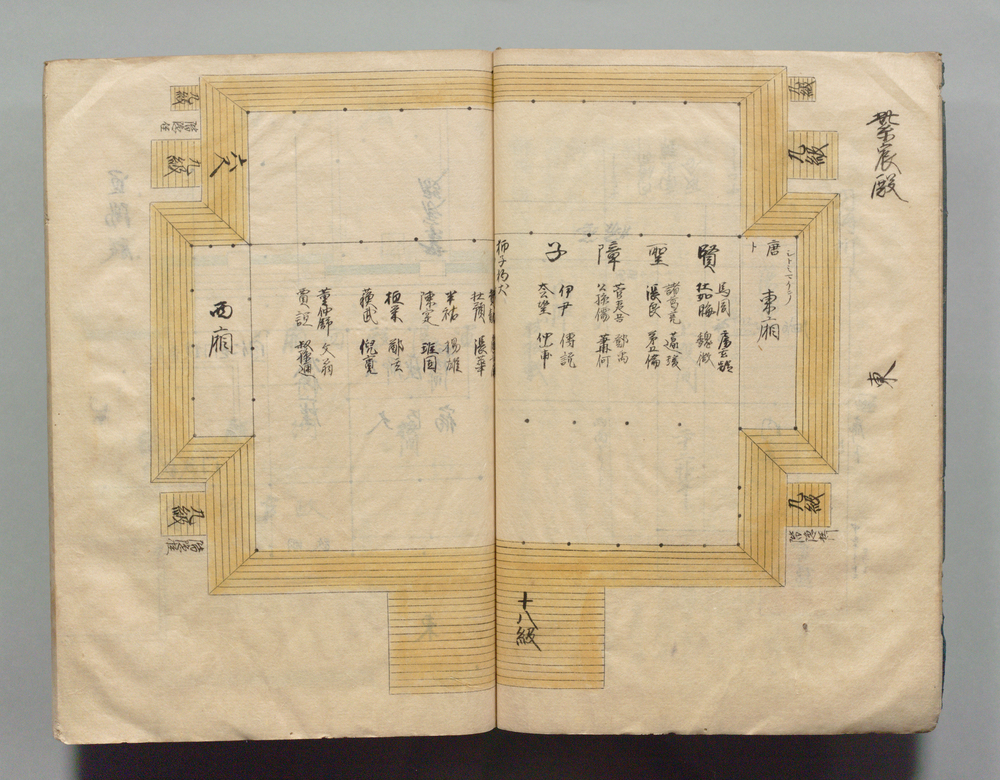 紫宸殿
東
級
九級
九級
唐
東廂
賢聖障子
馬周 房玄齢
杜如晦 魏徴
諸葛亮 蘧瑗
張良 第五倫
管夷吾 鄧禹
公孫僑 蕭何
伊尹 傅説
十八級
杜預 張華
羊祜 揚雄
陳寔 班固
桓栄 鄭玄
蘇武 倪寛
董仲舒 文翁
賈誼 叔孫通
西廂
六尺
級
九級
九級